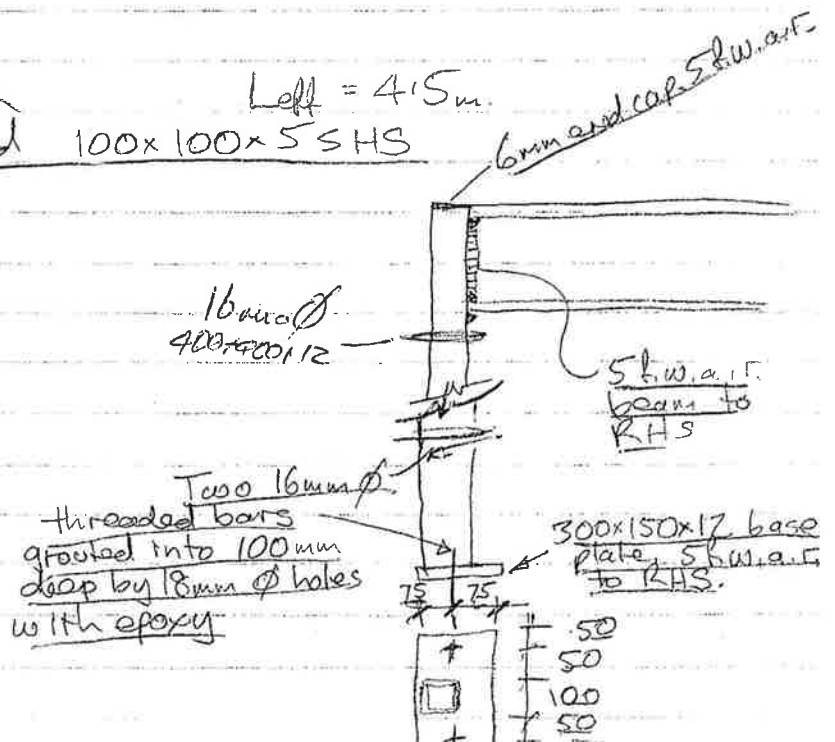 Leff = 4.5m.
100x100x5 SHS
6mm end cap. 5 f.w.a.r.
16mm Ø
5 f.w.a.r.
beam to
RHS
Two 16mm Ø
threaded bars
grouted into 100mm
deep by 18mm Ø holes
with epoxy
300x150x12 base
plate, 5 f.w.a.r.
to RHS.
75 75
50
50
100
50